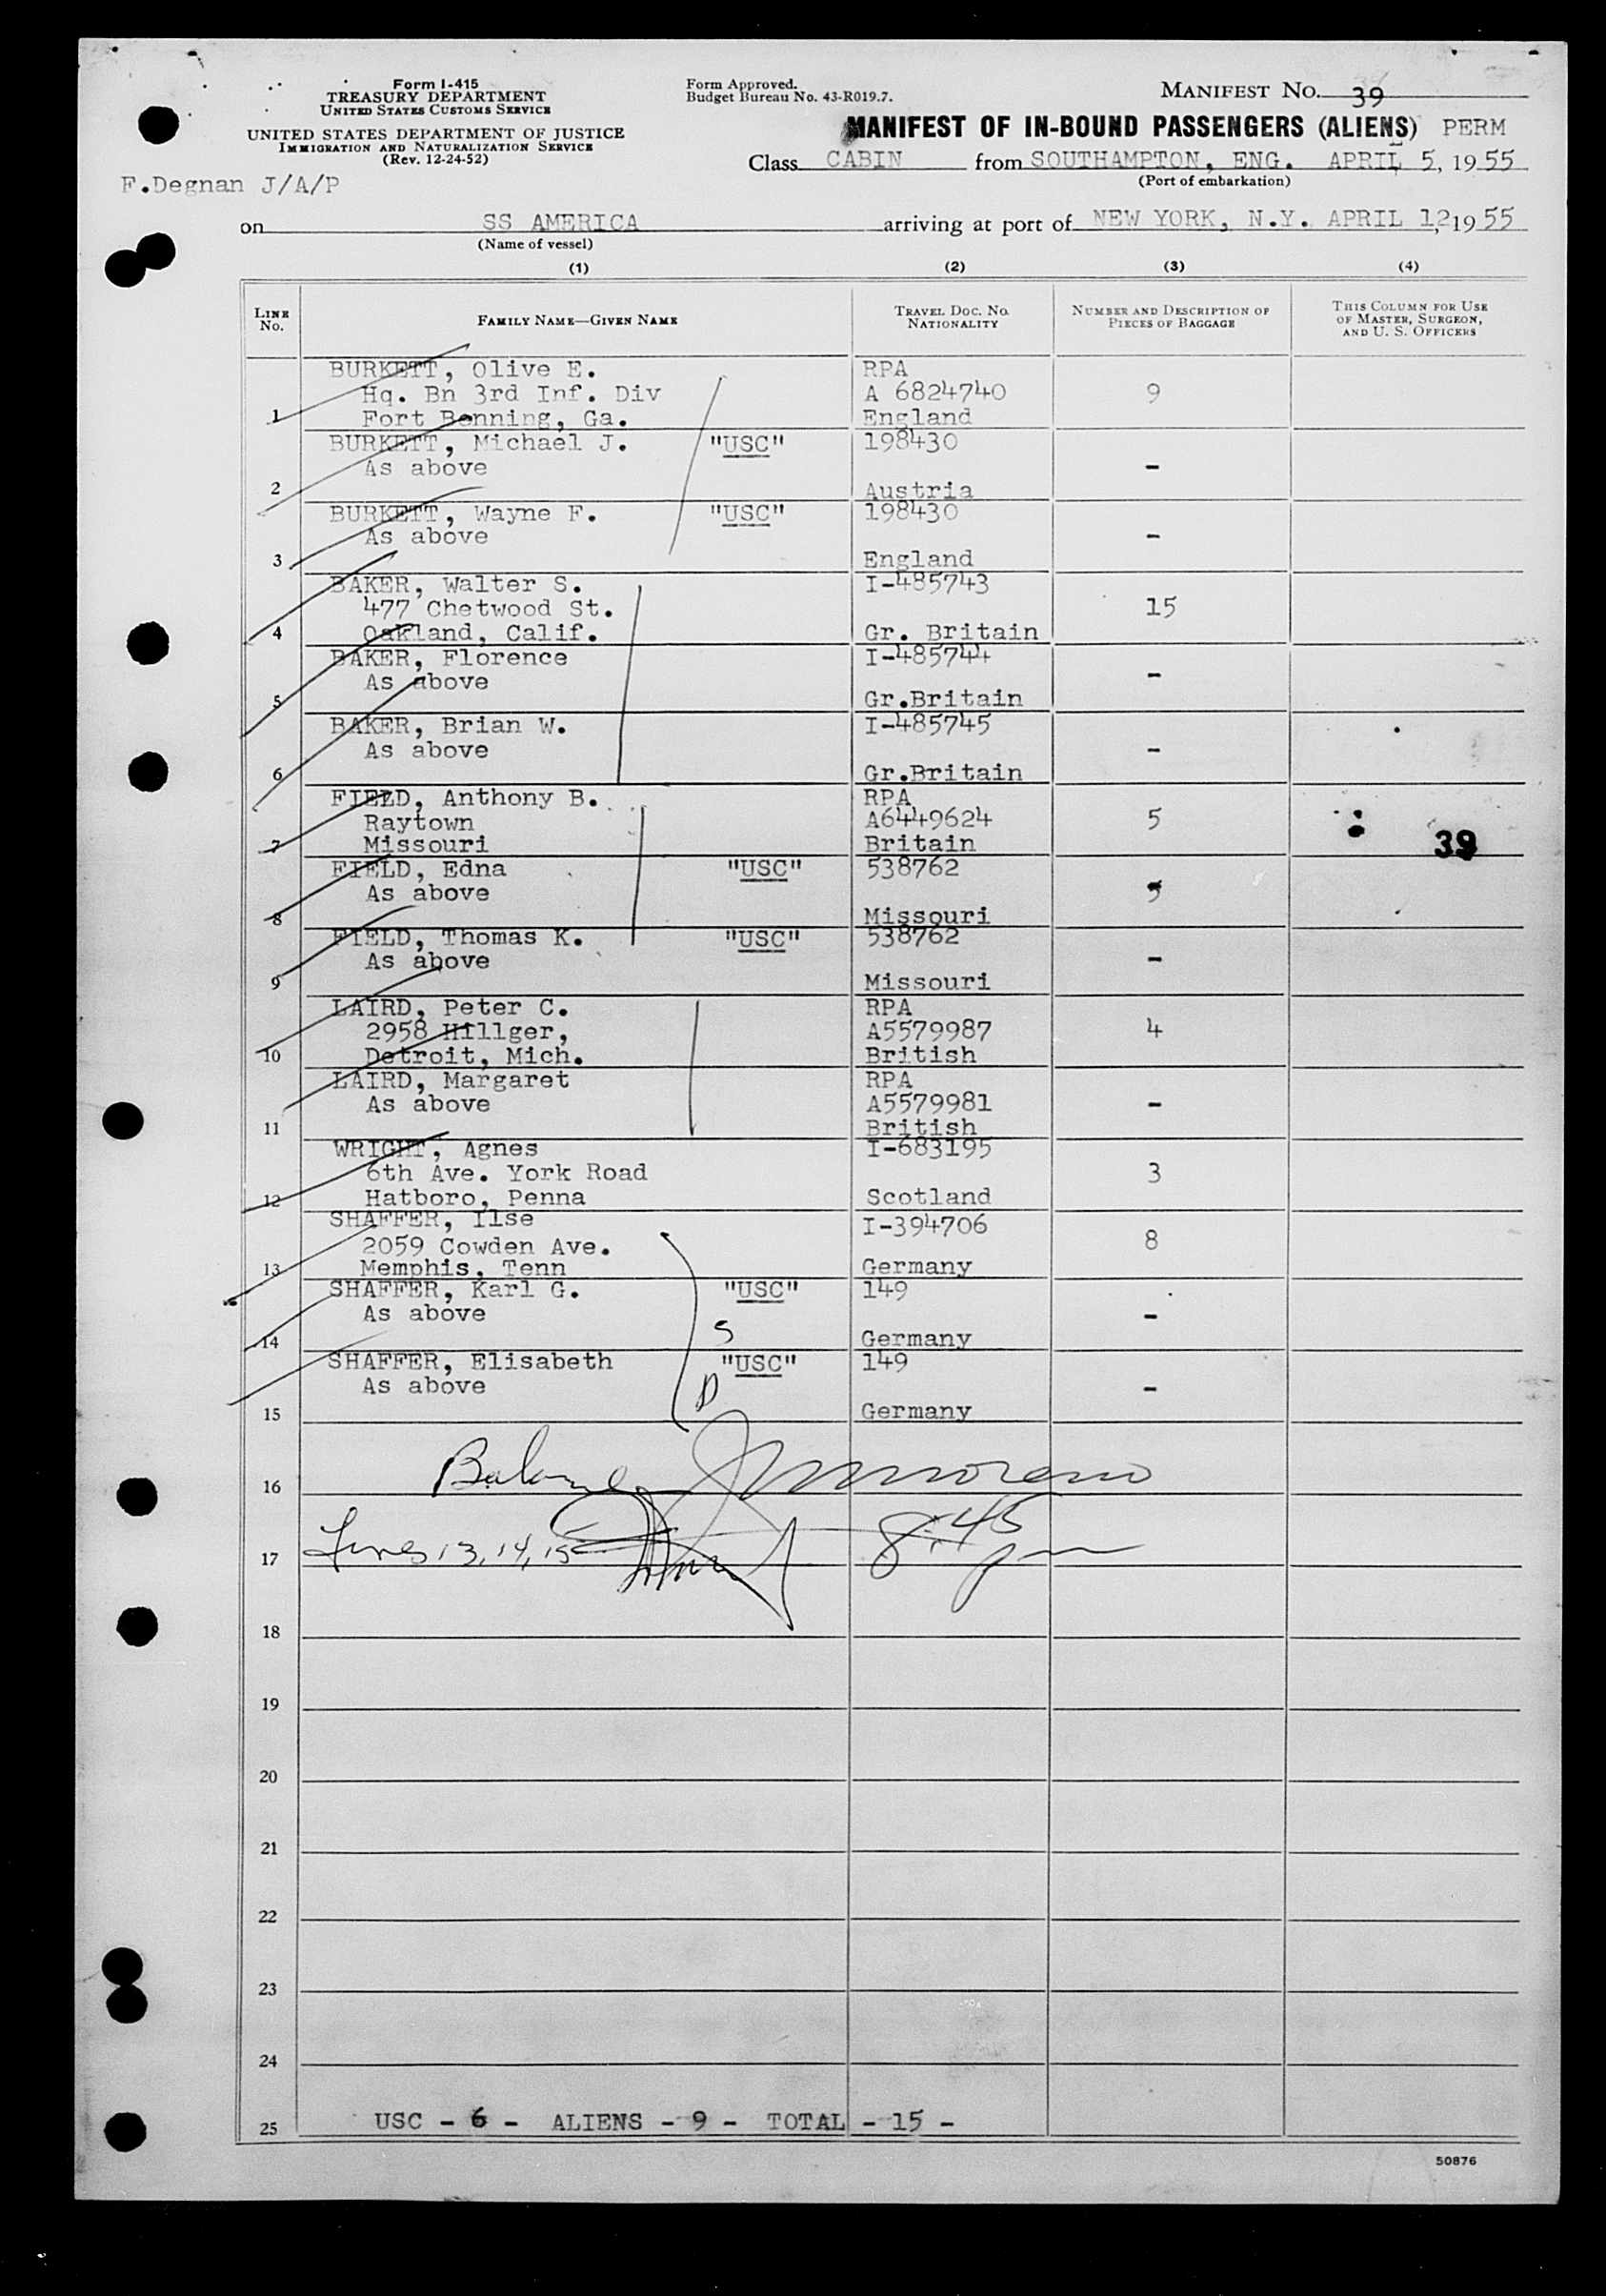 Form I-415
TREASURY DEPARTMENT
UNITED STATES CUSTOMS SERVICE
UNITED STATES DEPARTMENT OF JUSTICE
IMMIGRATION AND NATURALIZATION SERVICE
(Rev. 12-24-52)
F.Degnan J/A/P
Form Approved.
Budget Bureau No. 43-R019.7.
MANIFEST NO. 39
MANIFEST OF IN-BOUND PASSENGERS (ALIENS) PERM
Class CABIN from SOUTHAMPTON, ENG. APRIL 5, 1955
(Port of embarkation)
on SS AMERICA arriving at port of NEW YORK, N.Y. APRIL 12, 1955
(Name of vessel)
(1) (2) (3) (4)
LINE No. FAMILY NAME—GIVEN NAME TRAVEL DOC. NO. NATIONALITY NUMBER AND DESCRIPTION OF PIECES OF BAGGAGE THIS COLUMN FOR USE OF MASTER, SURGEON, AND U. S. OFFICERS
BURKETT, Olive E. RPA
Hq. Bn 3rd Inf. Div A 6824740 9
1 Fort Benning, Ga. England
BURKETT, Michael J. "USC" 198430
As above -
2 Austria
BURKETT, Wayne F. "USC" 198430
As above -
3 England
BAKER, Walter S. I-485743
477 Chetwood St. 15
4 Oakland, Calif. Gr. Britain
BAKER, Florence I-485744
As above -
5 Gr.Britain
BAKER, Brian W. I-485745
As above -
6 Gr.Britain
FIELD, Anthony B. RPA
Raytown A6449624 5
7 Missouri Britain
39
FIELD, Edna "USC" 538762
As above
8 Missouri
FIELD, Thomas K. "USC" 538762
As above -
9 Missouri
LAIRD, Peter C. RPA
2958 Hillger, A5579987 4
10 Detroit, Mich. British
LAIRD, Margaret RPA
As above A5579981 -
11 British
WRIGHT, Agnes I-683195
6th Ave. York Road 3
12 Hatboro, Penna Scotland
SHAFFER, Ilse I-394706
2059 Cowden Ave. 8
13 Memphis, Tenn Germany
SHAFFER, Karl G. "USC" 149
As above -
14 S Germany
SHAFFER, Elisabeth "USC" 149
As above -
D
15 Germany
16 Balance
17 Lines 13, 14, 15 8:45 pm
18
19
20
21
22
23
24
25 USC - 6 - ALIENS - 9 - TOTAL - 15 -
50876